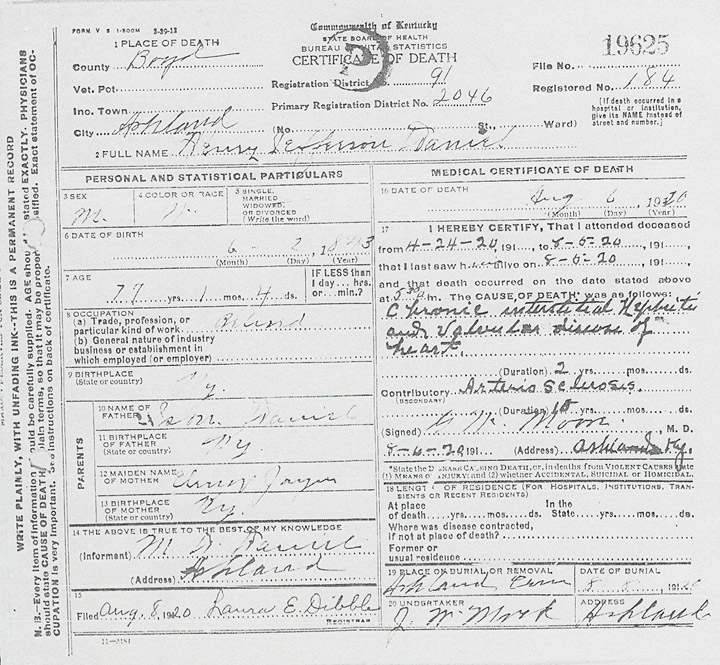 FORM V S 1-500M 3-29-12
Commonwealth of Kentucky
STATE BOARD OF HEALTH
BUREAU VITAL STATISTICS
CERTIFICATE OF DEATH
1 PLACE OF DEATH
County Boyd
Vot. Pct.
Inc. Town
City Ashland
Registration District 91
Primary Registration District No. 2046
File No. 19625
Registered No. 184
(No. St., Ward)
[If death occurred in a hospital or institution, give its NAME instead of street and number.]
2 FULL NAME Henry Jefferson Daniel
PERSONAL AND STATISTICAL PARTICULARS
3 SEX M.
4 COLOR OR RACE W.
5 SINGLE, MARRIED WIDOWED, OR DIVORCED (Write the word)
6 DATE OF BIRTH
6 2 1843
(Month) (Day) (Year)
7 AGE
77 yrs. 1 mos. 4 ds.
IF LESS than 1 day... hrs. or... min.?
8 OCCUPATION
(a) Trade, profession, or particular kind of work
(b) General nature of industry business or establishment in which employed (or employer)
9 BIRTHPLACE (State or country) Ky.
PARENTS
10 NAME OF FATHER Daniel
11 BIRTHPLACE OF FATHER (State or country) Ky.
12 MAIDEN NAME OF MOTHER
13 BIRTHPLACE OF MOTHER (State or country) Ky.
14 THE ABOVE IS TRUE TO THE BEST OF MY KNOWLEDGE
(Informant) Daniel
(Address) Ashland
15
Filed Aug 8, 1920 Laura E. Dibble
REGISTRAR
11-3181
MEDICAL CERTIFICATE OF DEATH
16 DATE OF DEATH
Aug 6, 1920
(Month) (Day) (Year)
17 I HEREBY CERTIFY, That I attended deceased
from 4-24-20, 191, to 8-6-20, 191,
that I last saw h alive on 8-6-20, 191,
and that death occurred on the date stated above
at 5:30 m. The CAUSE OF DEATH was as follows:
Chronic interstitial Nephritis
and Valvular disease of
heart
(Duration) 2 yrs. mos. ds.
Contributory Arterio Sclerosis
(SECONDARY)
(Duration) 10 yrs. mos. ds.
(Signed) Moore, M. D.
8-6-20, 191 (Address) Ashland Ky.
*State the DISEASE CAUSING DEATH, or, in deaths from VIOLENT CAUSES state (1) MEANS OF INJURY; and (2) whether ACCIDENTAL, SUICIDAL or HOMICIDAL.
18 LENGTH OF RESIDENCE (FOR HOSPITALS, INSTITUTIONS, TRANSIENTS OR RECENT RESIDENTS)
At place of death yrs. mos. ds. In the State yrs. mos. ds.
Where was disease contracted, if not at place of death?
Former or usual residence
19 PLACE OF BURIAL OR REMOVAL
Ashland Cem
DATE OF BURIAL
8 8, 1920
20 UNDERTAKER
J. W. Mock
ADDRESS
Ashland
WRITE PLAINLY, WITH UNFADING INK--THIS IS A PERMANENT RECORD
N. B.--Every item of information should be carefully supplied. AGE should be stated EXACTLY. PHYSICIANS
should state CAUSE OF DEATH in plain terms, so that it may be properly classified. Exact statement of OC-
CUPATION is very important. See instructions on back of certificate.